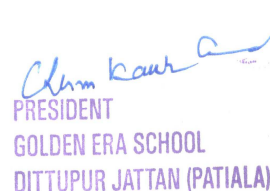 PRESIDENT
GOLDEN ERA SCHOOL
DITTUPUR JATTAN (PATIALA)